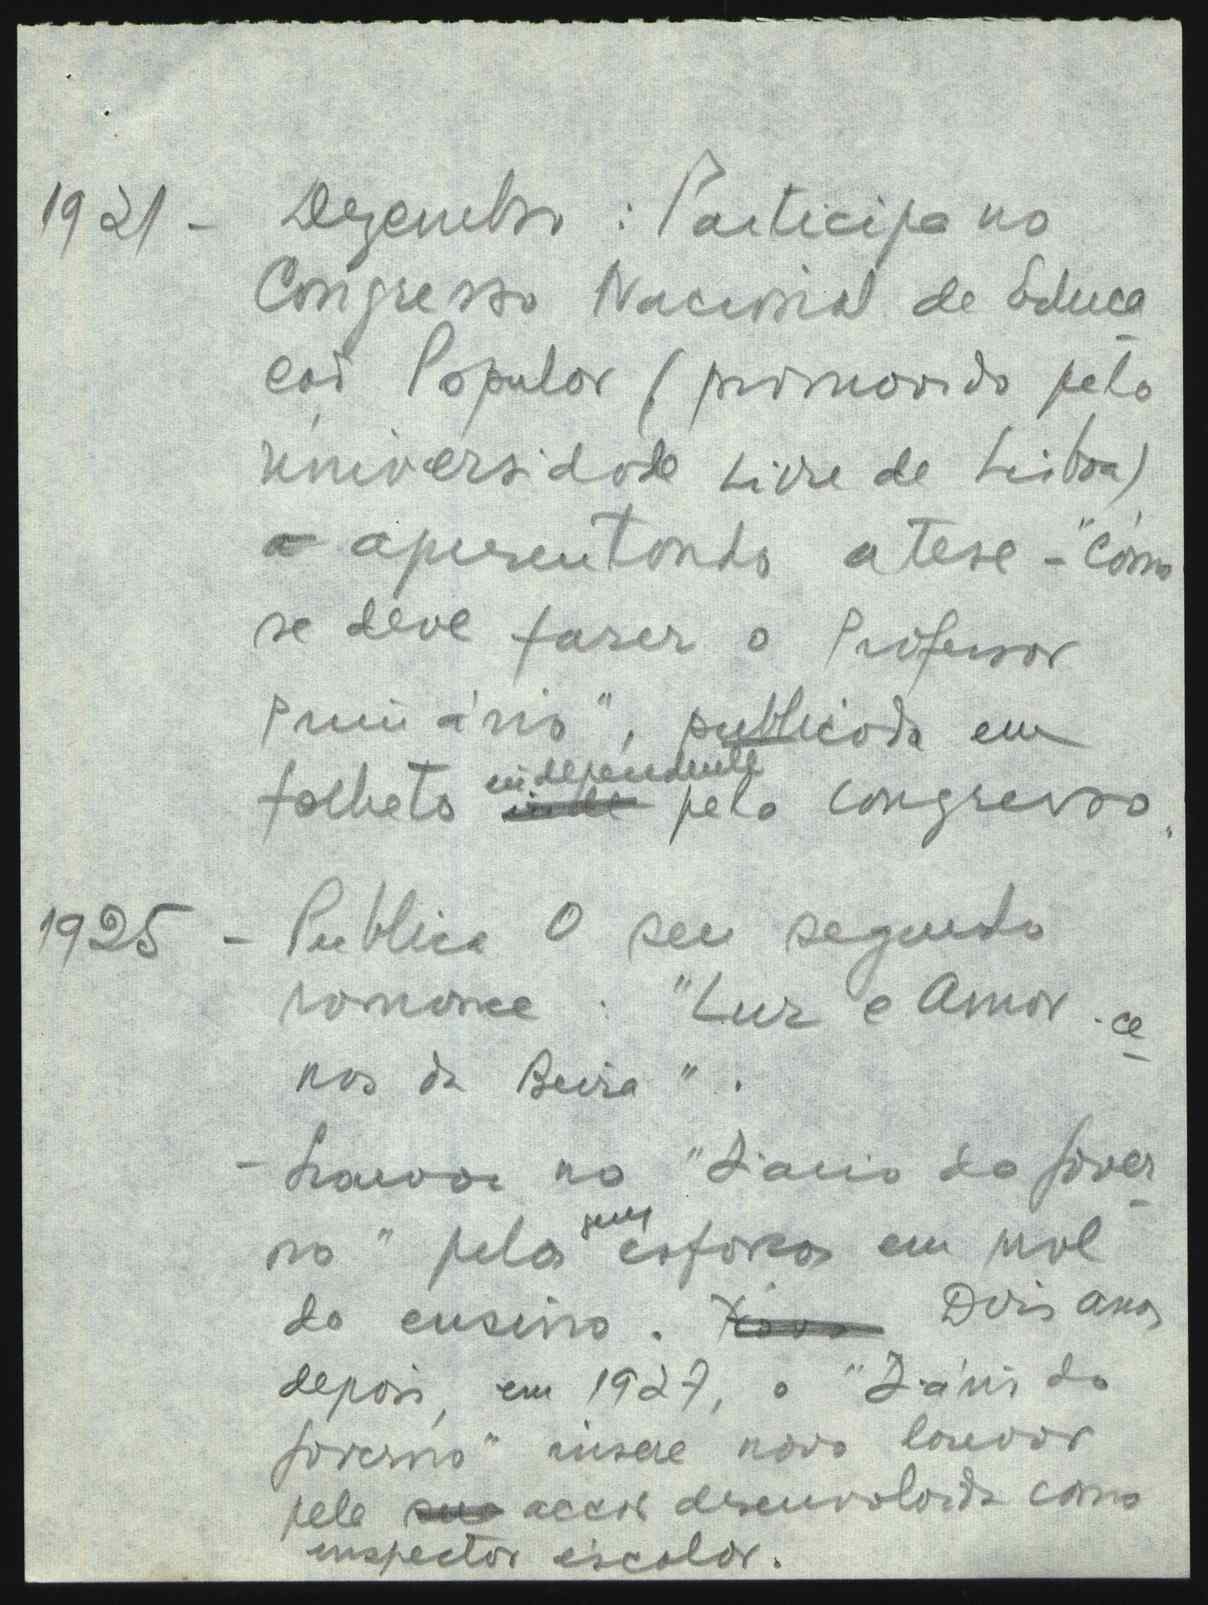 1921 - Dezembro : Participa no
Congresso Nacional de Educa
ção Popular (promovido pela
Universidade Livre de Lisboa)
a apresentando a tese - "Como
se deve fazer o Professor
Primário", publicada em
folheto independente pelo congresso.
1925 - Publica o seu segundo
romance : "Luz e Amor - ce
nas da Beira".
- Louvor no "Diario do Gover
no" pelos seus esforços em prol
do ensino. Dois anos
depois, em 1927, o "Diário do
Governo" insere novo louvor
pela sua acção desenvolvida como
inspector escolar.